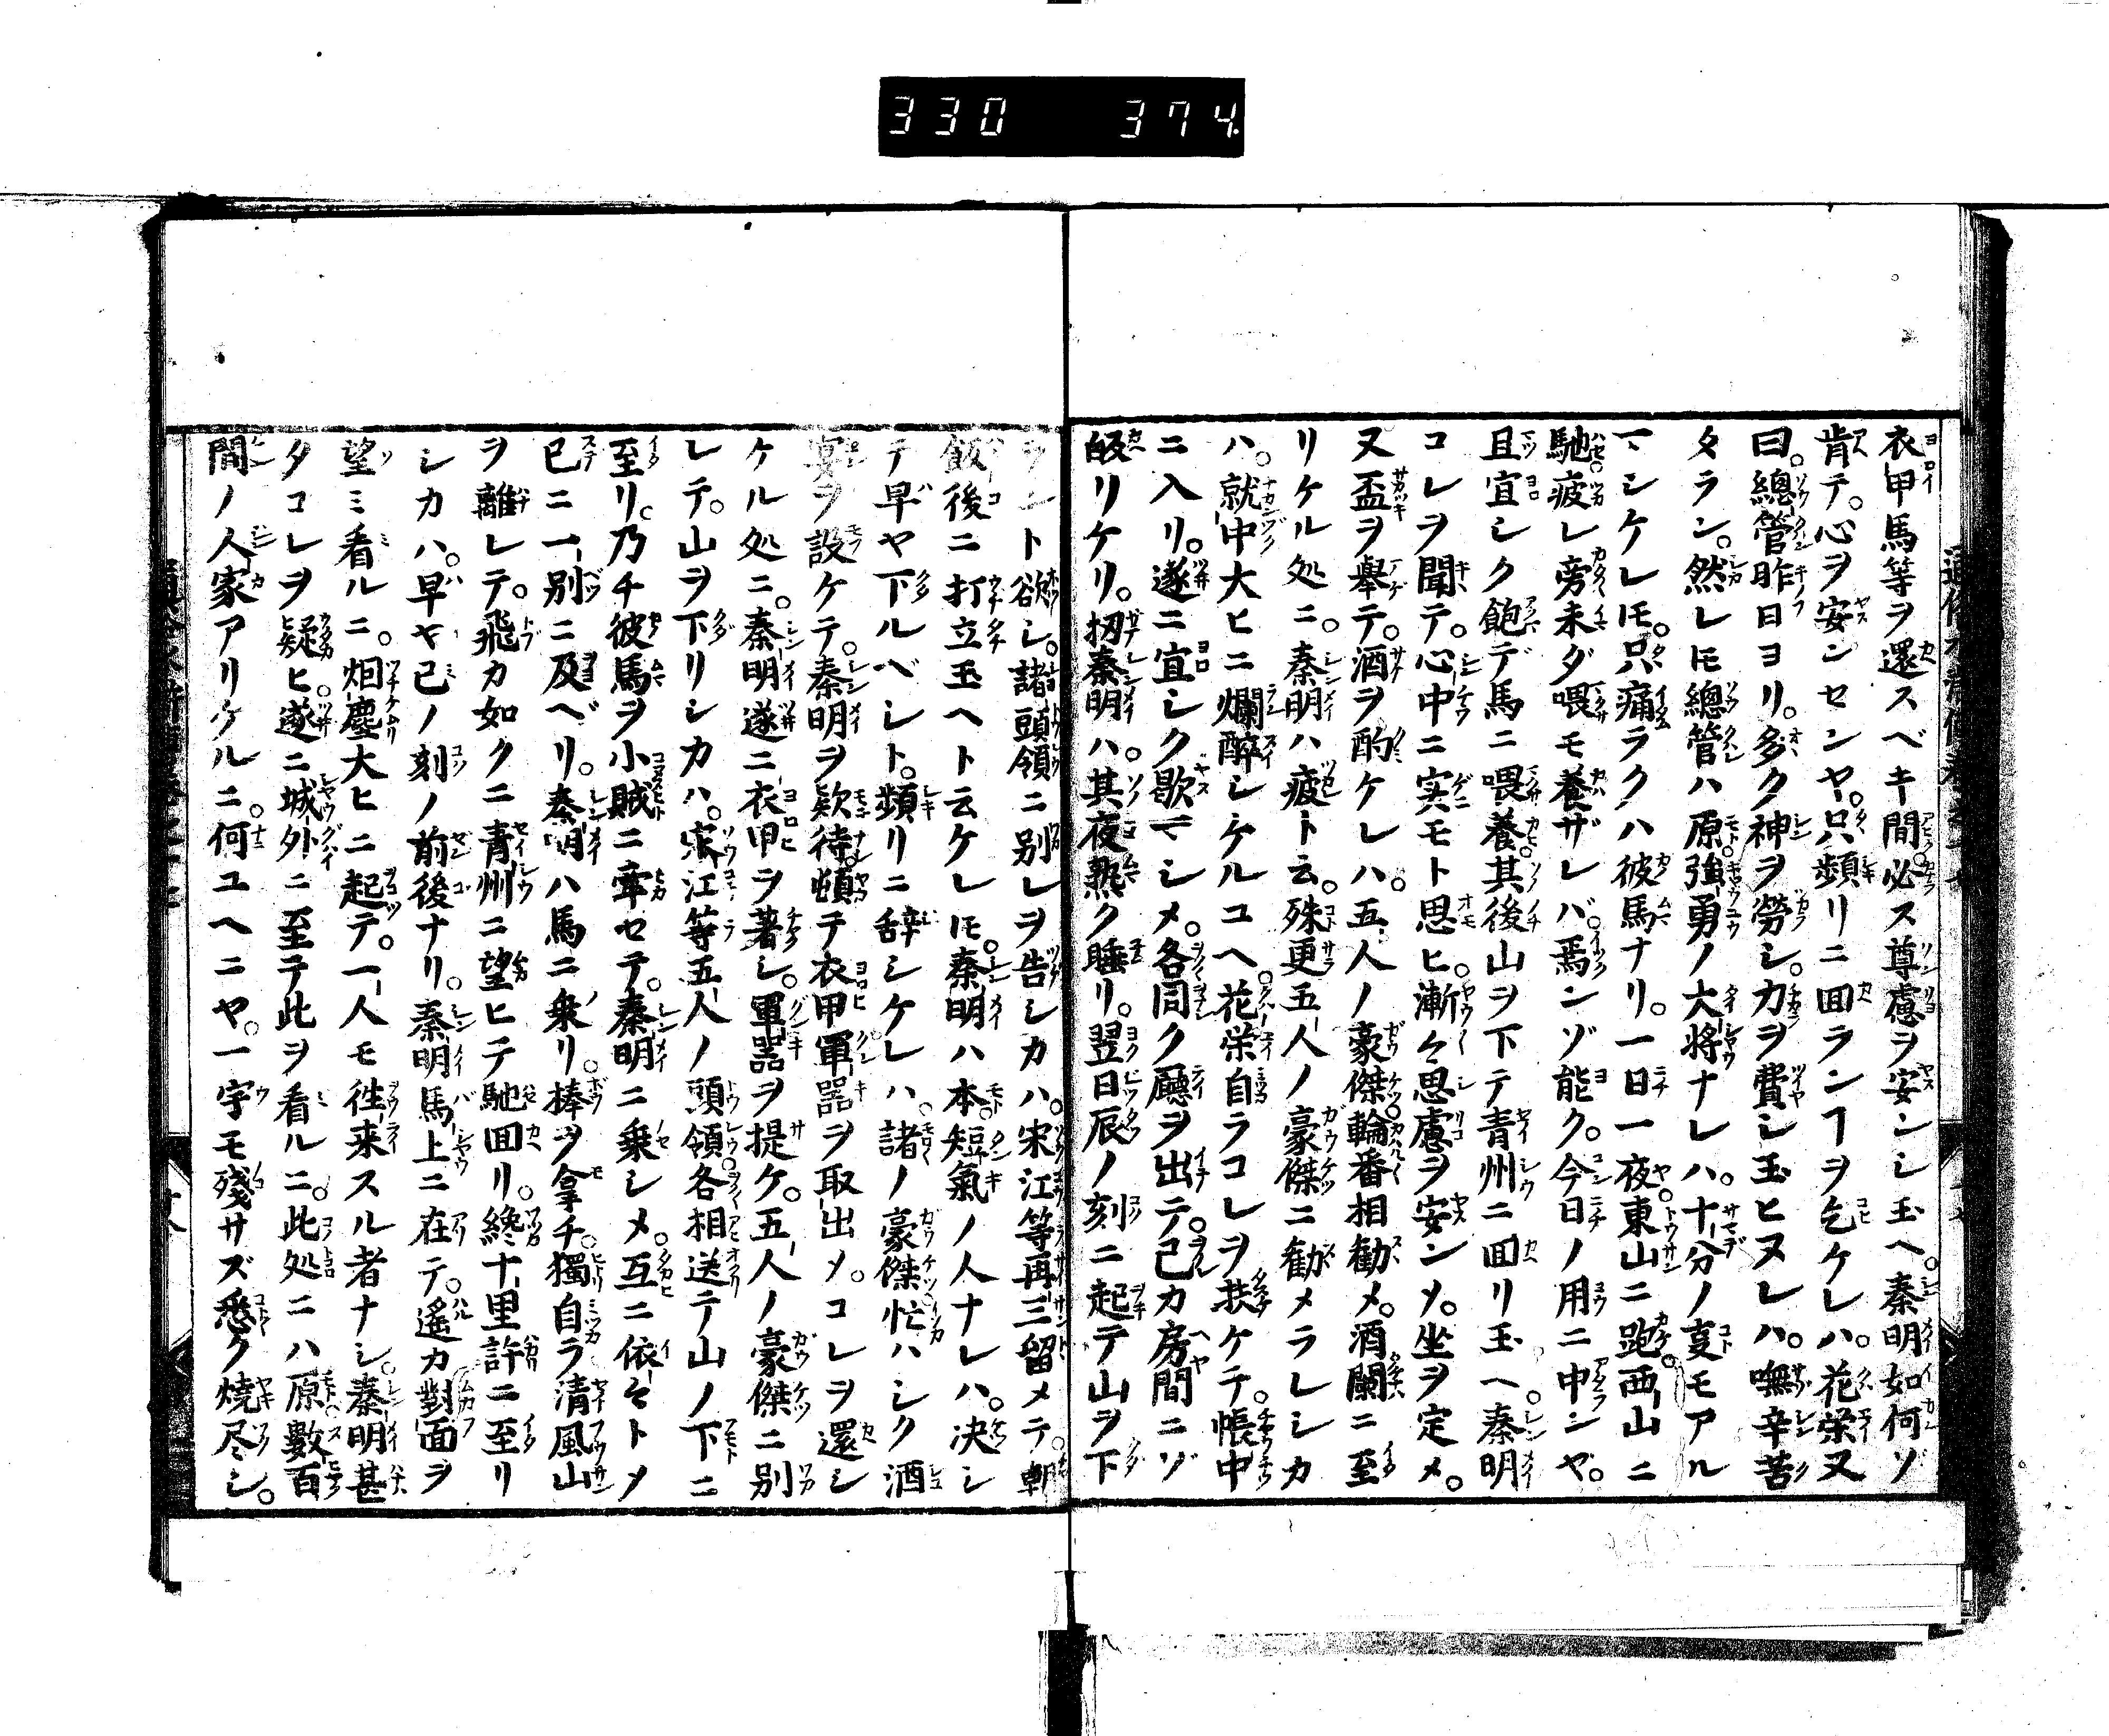 330 374
衣甲馬等ヲ還スベキ間必ス尊慮ヲ安ンシ玉ヘ。秦明如何ゾ
肯テ。心ヲ安ンセンヤ。只頻リニ囬ランヿヲ乞ケレハ。花栄又
曰。總管昨日ヨリ。多ク神ヲ勞シ。力ヲ費シ玉ヒヌレハ。嘸辛苦
タラン。然レ𪜈總管ハ原強勇ノ大將ナレハ。十分ノ㕝モアル
マシケレ𪜈。只痛ラクハ彼馬ナリ。一日一夜東山ニ跑西山ニ
馳疲レ旁未ダ喂モ養ザレバ。焉ンゾ能ク。今日ノ用ニ中ンヤ。
且宜シク飽デ馬ニ喂養其後山ヲ下テ青州ニ囬リ玉ヘ。秦明
コレヲ聞テ。心中ニ実モト思ヒ。漸々思慮ヲ安ンメ。坐ヲ定メ。
又盃ヲ舉テ。酒ヲ酌ケレハ。五人ノ豪傑輪番相勧メ。酒闌ニ至
リケル処ニ。秦明ハ疲ト云。殊更五人ノ豪傑ニ勧メラレシカ
ハ。就中大ヒニ爛醉シケルコヘ。花栄自ラコレヲ扶ケテ。帳中
ニ入リ。遂ニ宜シク歇マシメ。各同ク廳ヲ出テ。己カ房間ニゾ
皈リケリ。扨秦明ハ。其夜熟ク睡リ。翌日辰ノ刻ニ起テ山ヲ下
ラント欲シ。諸頭領ニ別レヲ告シカハ。宋江等再三留メテ。朝
飯後ニ打立玉ヘト云ケレ𪜈。秦明ハ本短氣ノ人ナレハ。决シ
テ早ヤ下ルベシト。頻リニ辞シケレハ。諸ノ豪傑忙ハシク酒
宴ヲ設ケテ。秦明ヲ欵待。頓テ衣甲軍器ヲ取出メ。コレヲ還シ
ケル処ニ。秦明遂ニ衣甲ヲ著シ。軍器ヲ提ケ。五人ノ豪傑ニ別
レテ。山ヲ下リシカハ。宋江等五人ノ頭領各相送テ山ノ下ニ
至リ。乃チ彼馬ヲ小賊ニ牽セテ。秦明ニ乗シメ。互ニ依々トメ
已ニ一別ニ及ベリ。秦明ハ馬ニ乗リ。棒ヲ拿チ。獨自ラ清風山
ヲ離レテ。飛カ如クニ青州ニ望ヒテ馳囬リ。終十里許ニ至リ
シカハ。早ヤ已ノ刻ノ前後ナリ。秦明馬上ニ在テ。遙カ對面ヲ
望ミ看ルニ。烟塵大ヒニ起テ。一人モ徃来スル者ナシ。秦明甚
タコレヲ疑ヒ遂ニ城外ニ至テ此ヲ看ルニ。此処ニハ原數百
間ノ人家アリケルニ。何ユヘニヤ。一宇モ殘サズ悉ク燒尽シ。